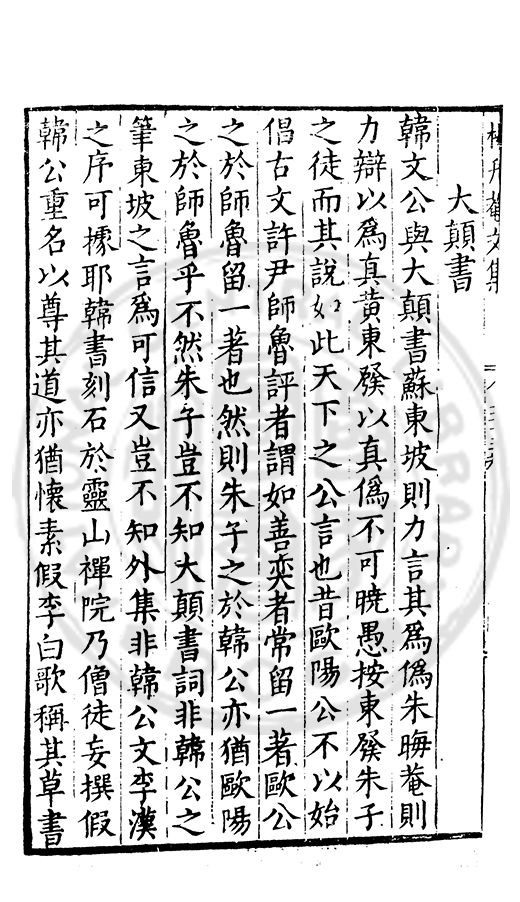 大顛書
韓文公與大顛書蘇東坡則力言其爲僞朱晦菴則
力辯以爲真黃東發以真僞不可曉愚按東發朱子
之徒而其說如此天下之公言也昔歐陽公不以始
倡古文許尹師魯評者謂如善奕者常留一著歐公
之於師魯留一著也然則朱子之於韓公亦猶歐陽
之於師魯乎不然朱子豈不知大顛書詞非韓公之
筆東坡之言爲可信又豈不知外集非韓公文李漢
之序可據耶韓書刻石於靈山禪院乃僧徒妄撰假
韓公重名以尊其道亦猶懷素假李白歌稱其草書